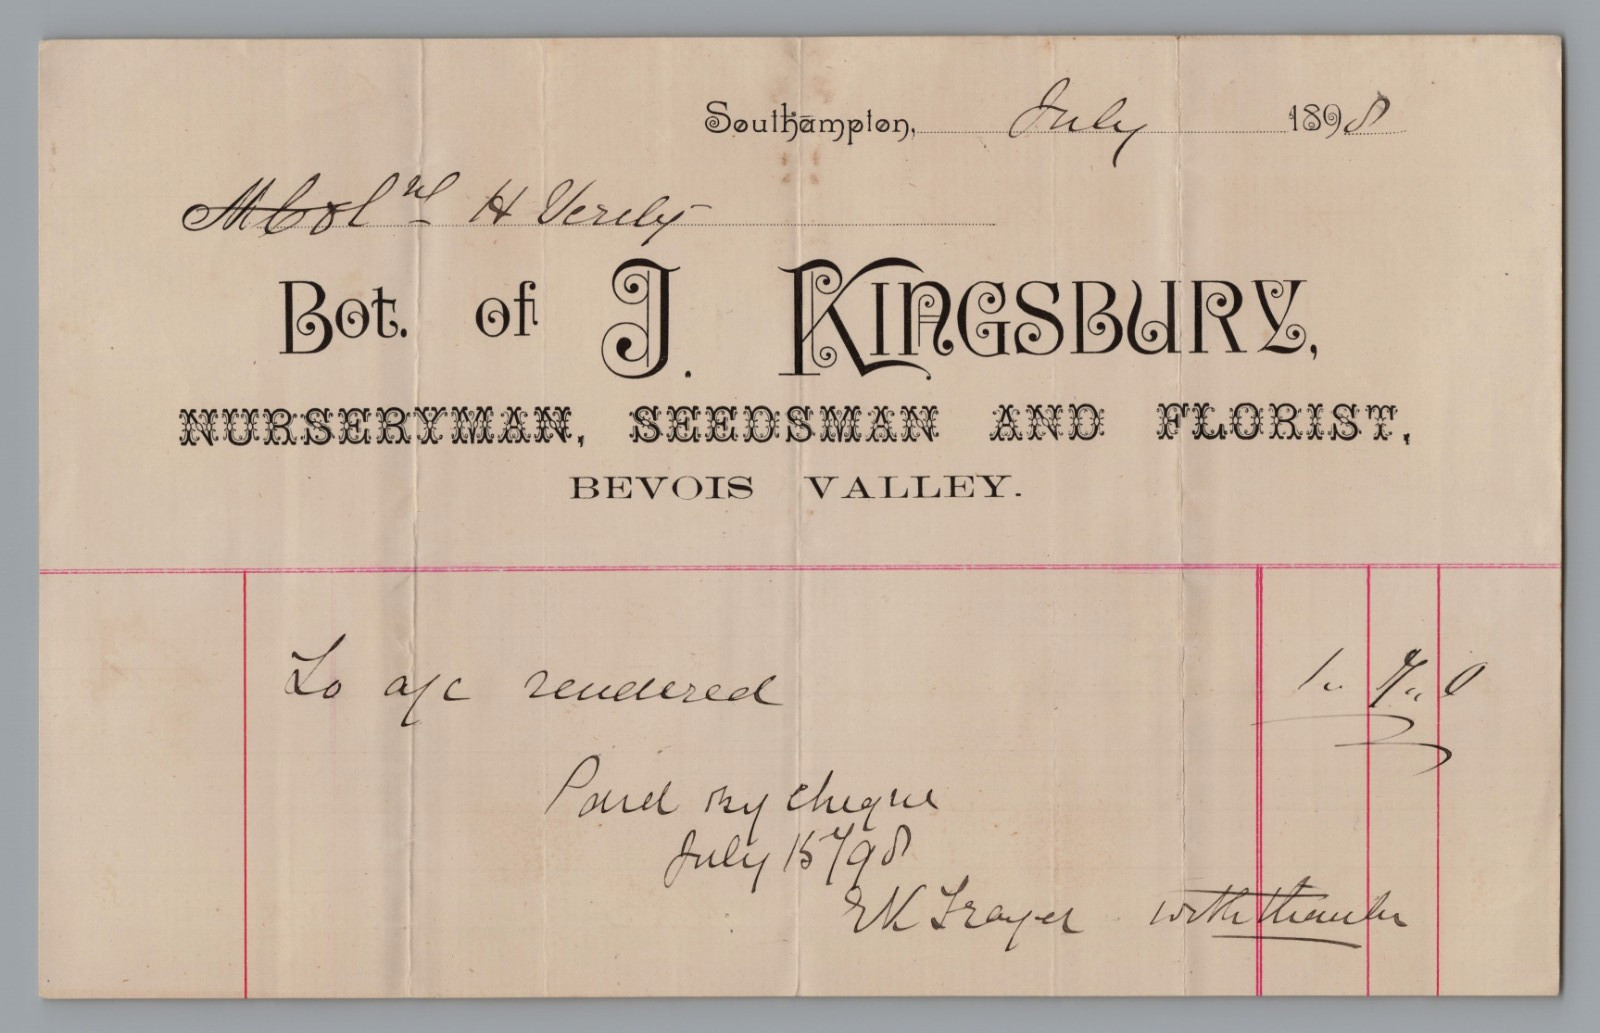 Southampton, July 1898
M Colnel H Verely
Bot. of J. KINGSBURY,
NURSERYMAN, SEEDSMAN AND FLORIST,
BEVOIS VALLEY.
To a/c rendered 1 " " 0
Paid By Cheque
July 15/98
EK Frayer with thanks